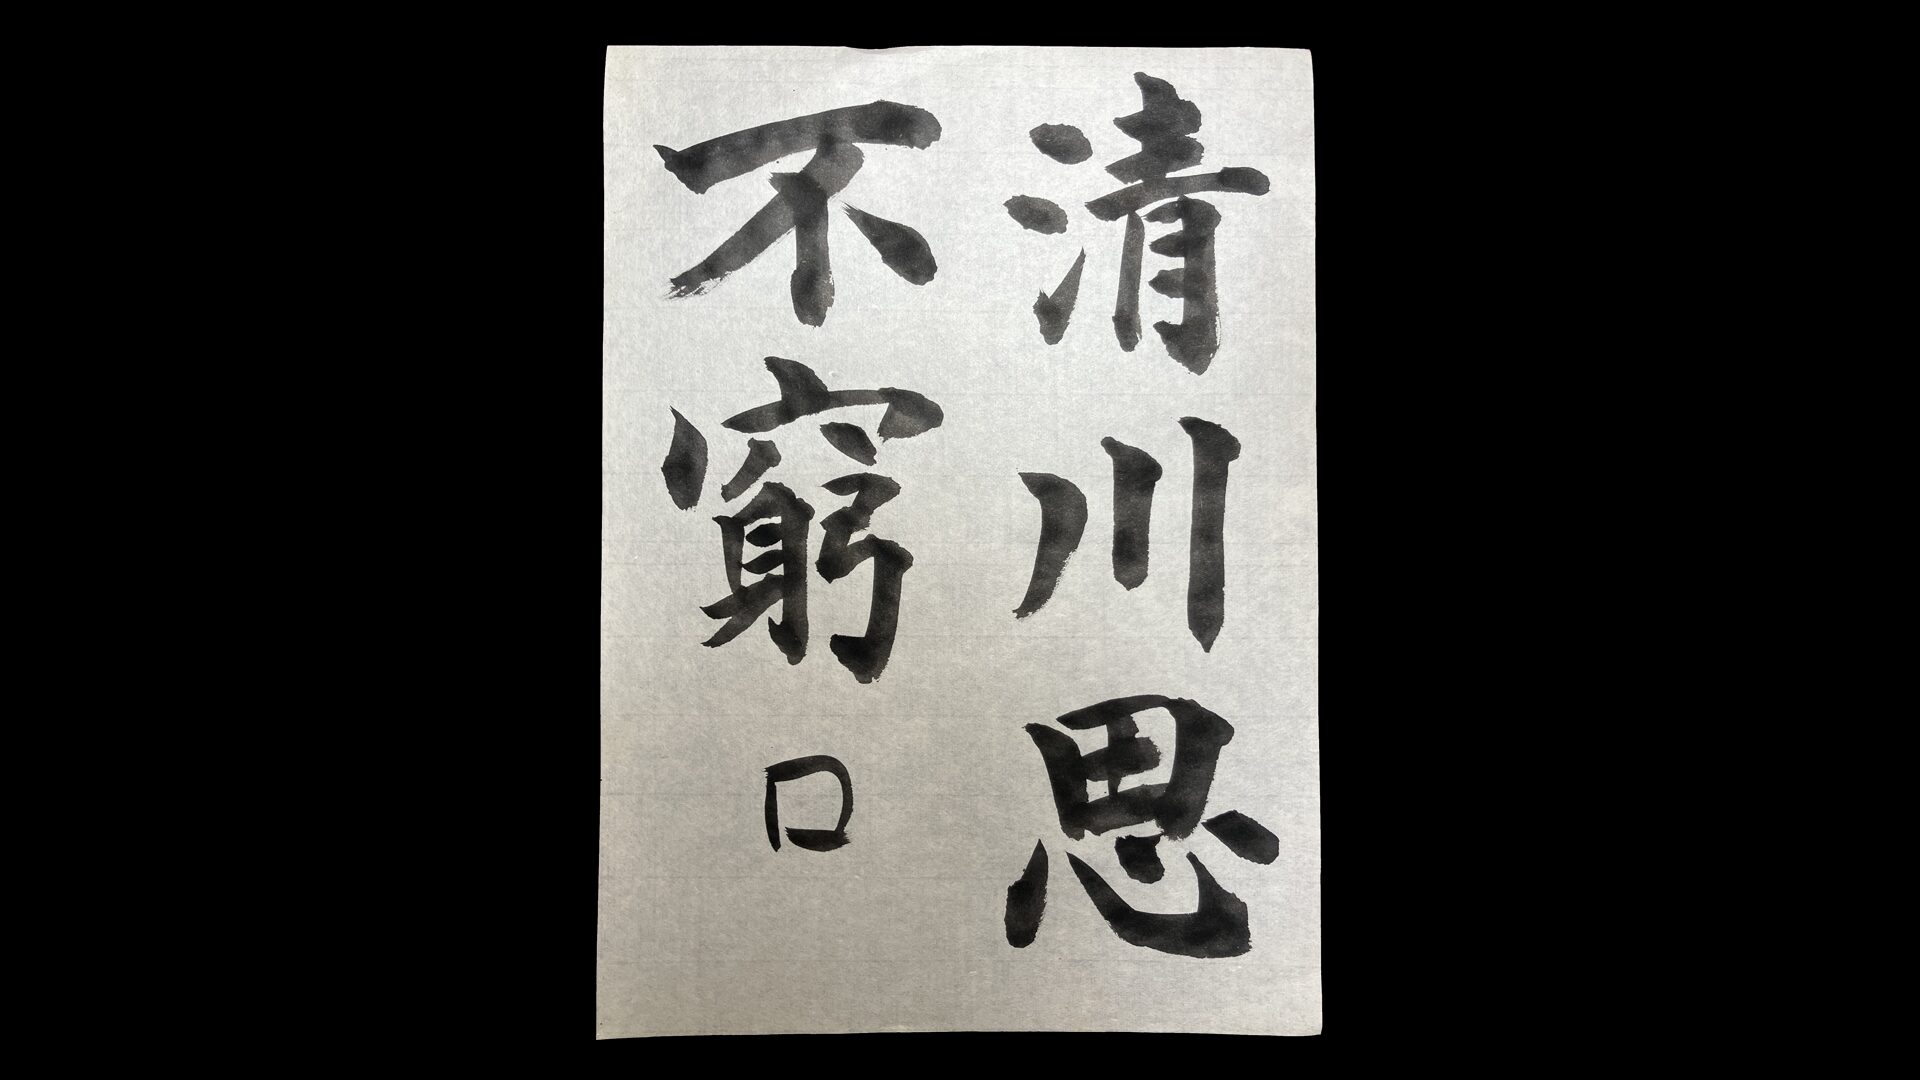 清川思
不窮口